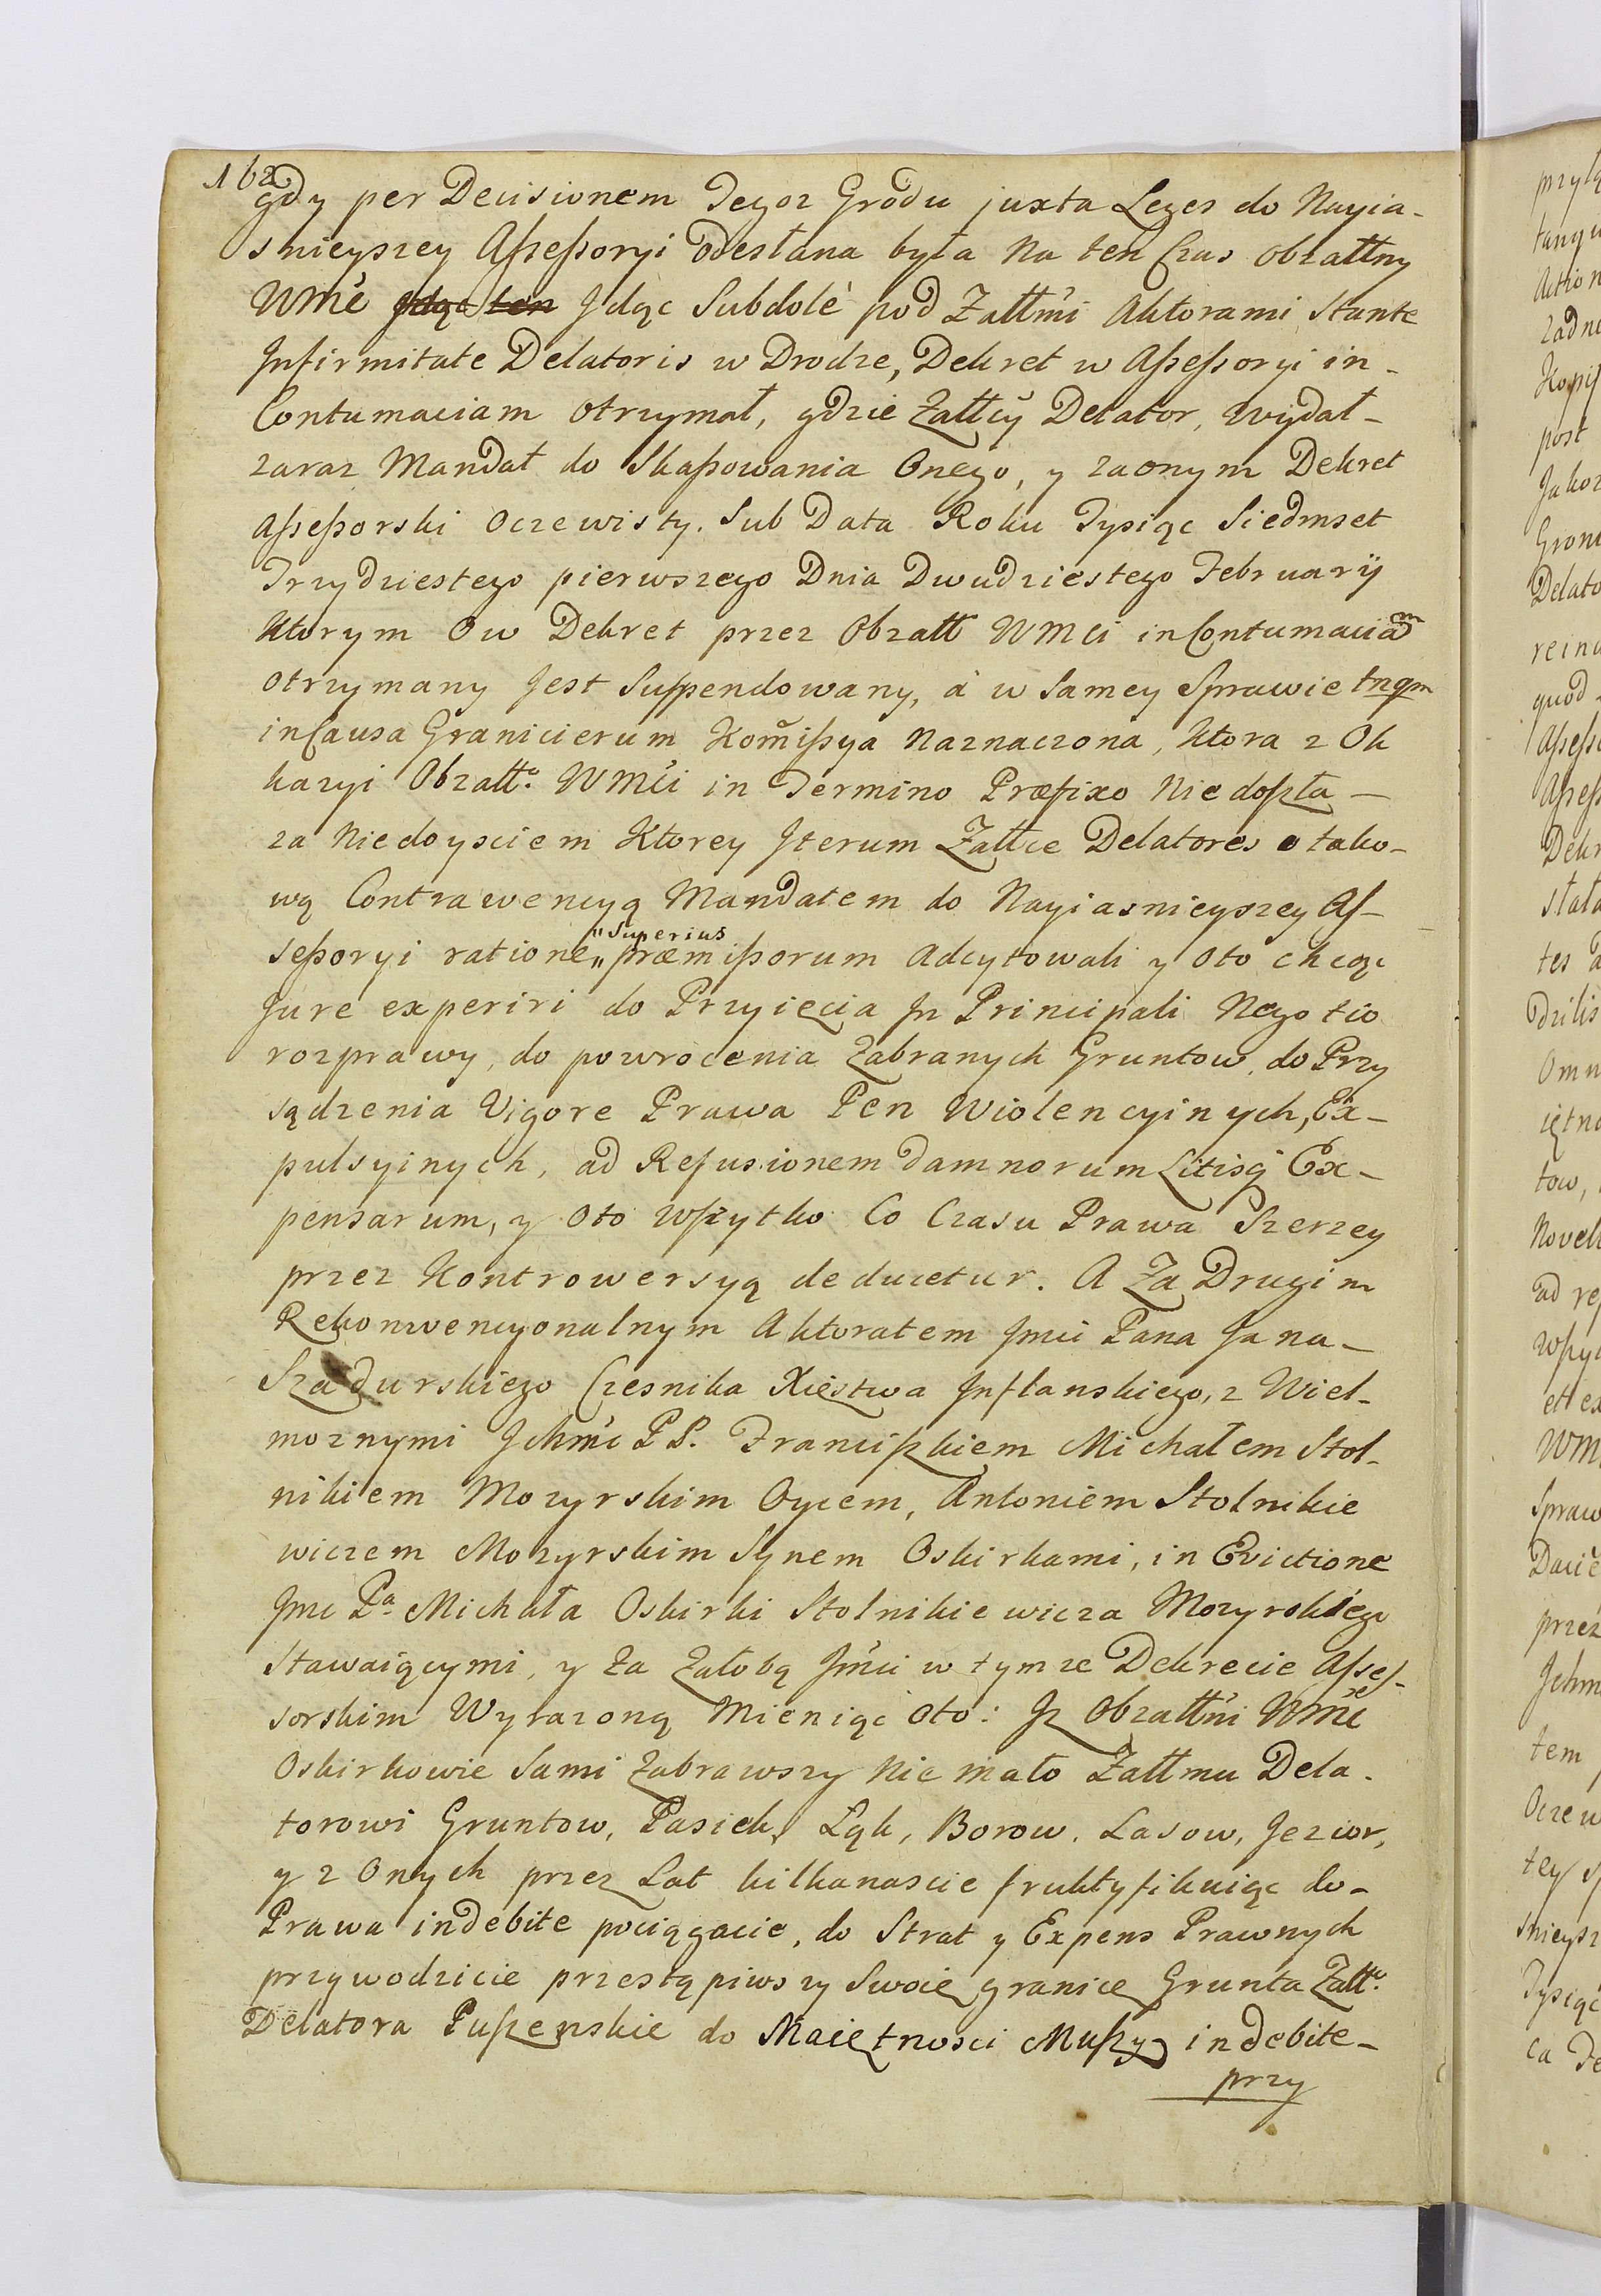 162
gdy per Decisionem Tegoz Grodu juxta Leges do Nayia-
snieyszey Assessoryi odesłana była Na ten Czas obzałłny
WMć Jdąc ten Jdąc Subdolè pod Załłmi Aktorami Stante
Jnfirmitate Delatoris w Drodze, Dekret w Assessoryi in-
Contumaciam otrzymał, gdzie Załłcy Delator, wydał-
zaraz Mandat do Skassowania Onego, y za onym Dekret
Assessorski Oczewisty. Sub Data Roku Tysiąc Siedmset
Trzydziestego pierwszego Dnia Dwudziestego February
Ktorym Ow Dekret przez Obzałł WMCi in Contumaciam
otrzymany Jest Suspendowany, à w Samey Sprawie tnqm
in Causa Granicierum Kommissya Naznaczona, Ktora z Ok
kazyi Obzałło WMCi in Termino Præfixo Niedoszła-
za Niedoysciem Ktorey Jterum Załłce Delatores o tako-
wą Contrawencyą Mandatem do Nayiasnieyszey As-
sessoryi ratione „Superius „præmissorum Adcytowali y oto chcąc
Jure experiri do Przyięcia Jn Principali Negotio
rozprawy, do powrocenia Zabranych Gruntow, do Przy
sądzenia Vigore Prawa Pen Wiolencyinych, Ex-
pulsyinych, ad Refusionem damnorum Litisq Ex-
pensarum, y oto wszytko Co Czasu Prawa Szerzey
przez Kontrowersyą deducetur. A Za Drugim
Rekonwencyonalnym Aktoratem Jmci Pana Jana-
Szadurskiego Czesnika Xięstwa Jnflanskiego, z Wiel-
moznymi Jchmć PP. Franciszkiem Michałem Stol-
nikiem Mozyrskim Oycem, Antoniem Stolnikie
wiczem Mozyrskim Synem Oskirkami, in Evictione
Jmc Pa Michała Oskirki Stolnikiewicza Mozyrskiego
Stawaiącymi, y Za Załobą Jmci w tymze Dekrecie Asses-
sorskim Wyrazoną Mieniąc oto: Jz Obzałłni WMć
Oskirkowie Sami Zabrawszy Nie mało Załłmu Dela-
torowi Gruntow, Pasiek, Łąk, Borow, Lasow, Jezior,
y z Onych przez Lat kilkanascie fruktyfikuiąc do-
Prawa indebite pociągacie, do Strat y Expens Prawnych
przywodzicie przestąpiwszy Swoie granice Grunta Załło
Delatora Puszenskie do Maiętnosci Muszy indebite-
przy